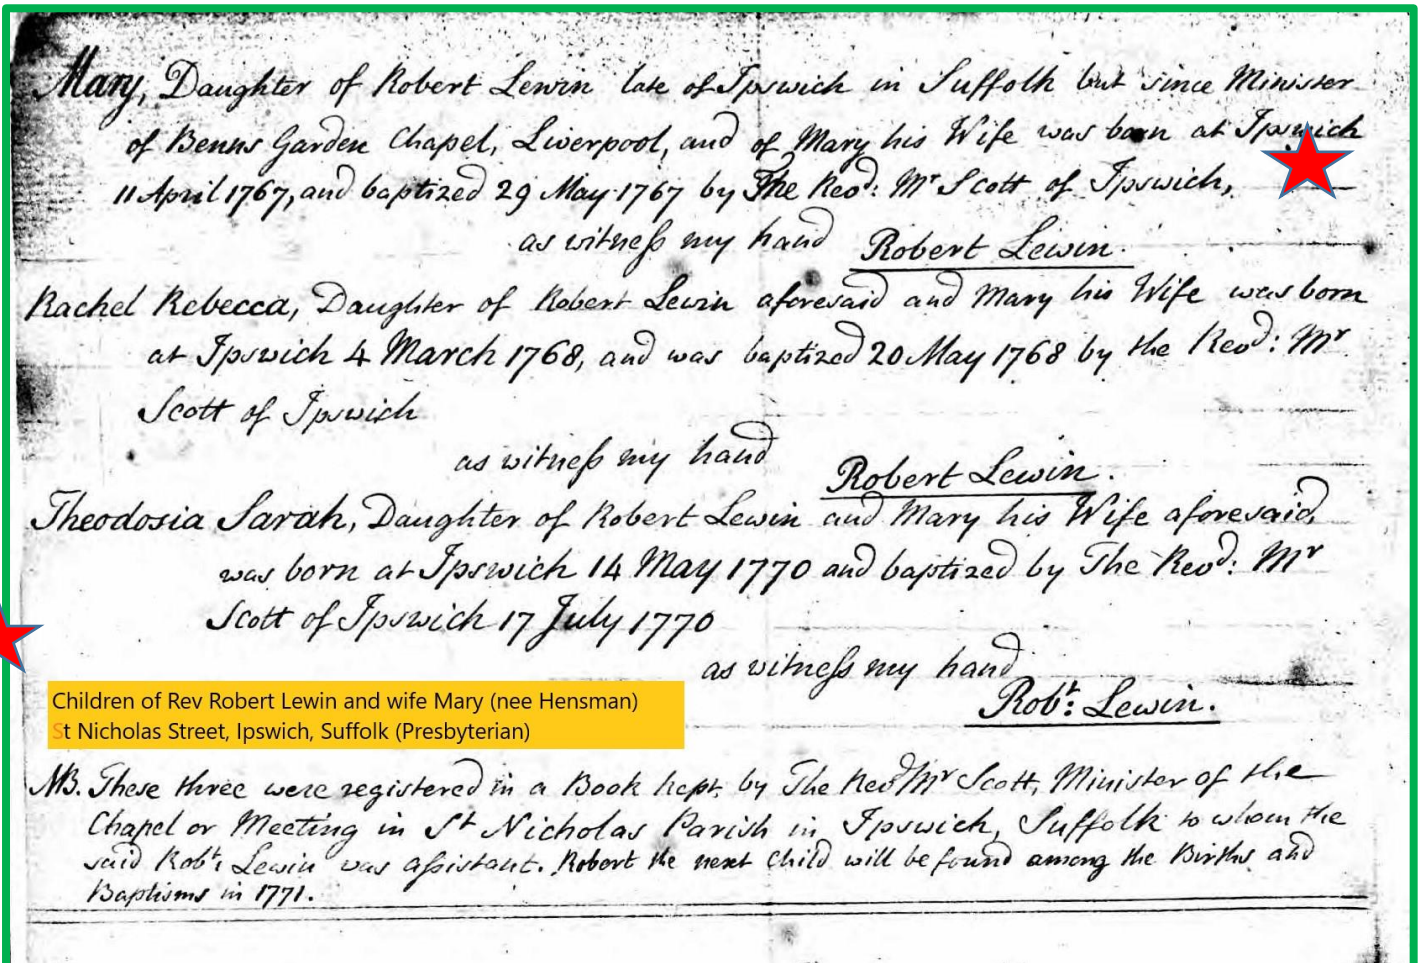 Mary, Daughter of Robert Lewin late of Ipswich in Suffolk but since Minister
of Benns Garden Chapel, Liverpool, and of Mary his Wife was born at Ipswich
11 April 1767, and baptized 29 May 1767 by The Revd: Mr Scott of Ipswich,
as witneſs my hand Robert Lewin.
Rachel Rebecca, Daughter of Robert Lewin aforesaid and Mary his Wife was born
at Ipswich 4 March 1768, and was baptized 20 May 1768 by the Revd: Mr
Scott of Ipswich
as witneſs my hand
Robert Lewin.
Theodosia Sarah, Daughter of Robert Lewin and Mary his Wife aforesaid,
was born at Ipswich 14 May 1770 and baptized by The Revd: Mr
Scott of Ipswich 17 July 1770
as witneſs my hand
Robt: Lewin.
Children of Rev Robert Lewin and wife Mary (nee Hensman)
St Nicholas Street, Ipswich, Suffolk (Presbyterian)
NB. These three were registered in a Book kept by The Revd Mr Scott, Minister of the
Chapel or Meeting in St Nicholas Parish in Ipswich, Suffolk to whom the
said Robt: Lewin was aſsistant. Robert the next Child will be found among the Births and
Baptisms in 1771.